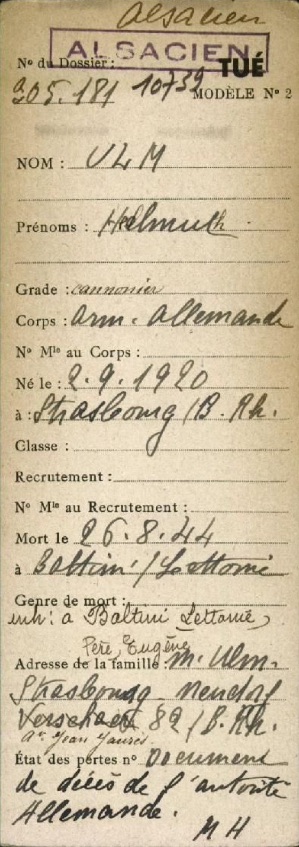 alsacien
ALSACIEN
TUÉ
No du Dossier :
205.181 10732 MODÈLE No 2
NOM : ULM
Prénoms : Helmuth
Grade : cannonier
Corps : Arm. Allemande
No Mle au Corps :
Né le : 2.9.1920
à : Strasbourg / B. Rh.
Classe :
Recrutement :
No Mle au Recrutement :
Mort le 26.8.44
à Baltini / Lettonie
Genre de mort :
inh : à Baltini Lettonie,
Père, Eugène
Adresse de la famille : M. Ulm.
Strasbourg Neudorf
82 / B. Rh.
Av. Jean Jaurès
État des pertes no Document
de décès de l'autorité
Allemande.
M H